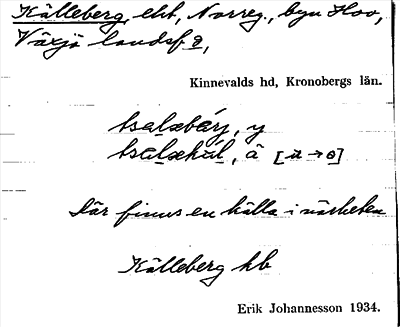 Källeberg, eht, Norreg., byn Hov,
Växjö landsf 9,
Kinnevalds hd, Kronobergs län.
y
å
Där finns en källa i närheten
Källeberg hb
Erik Johannesson 1934.